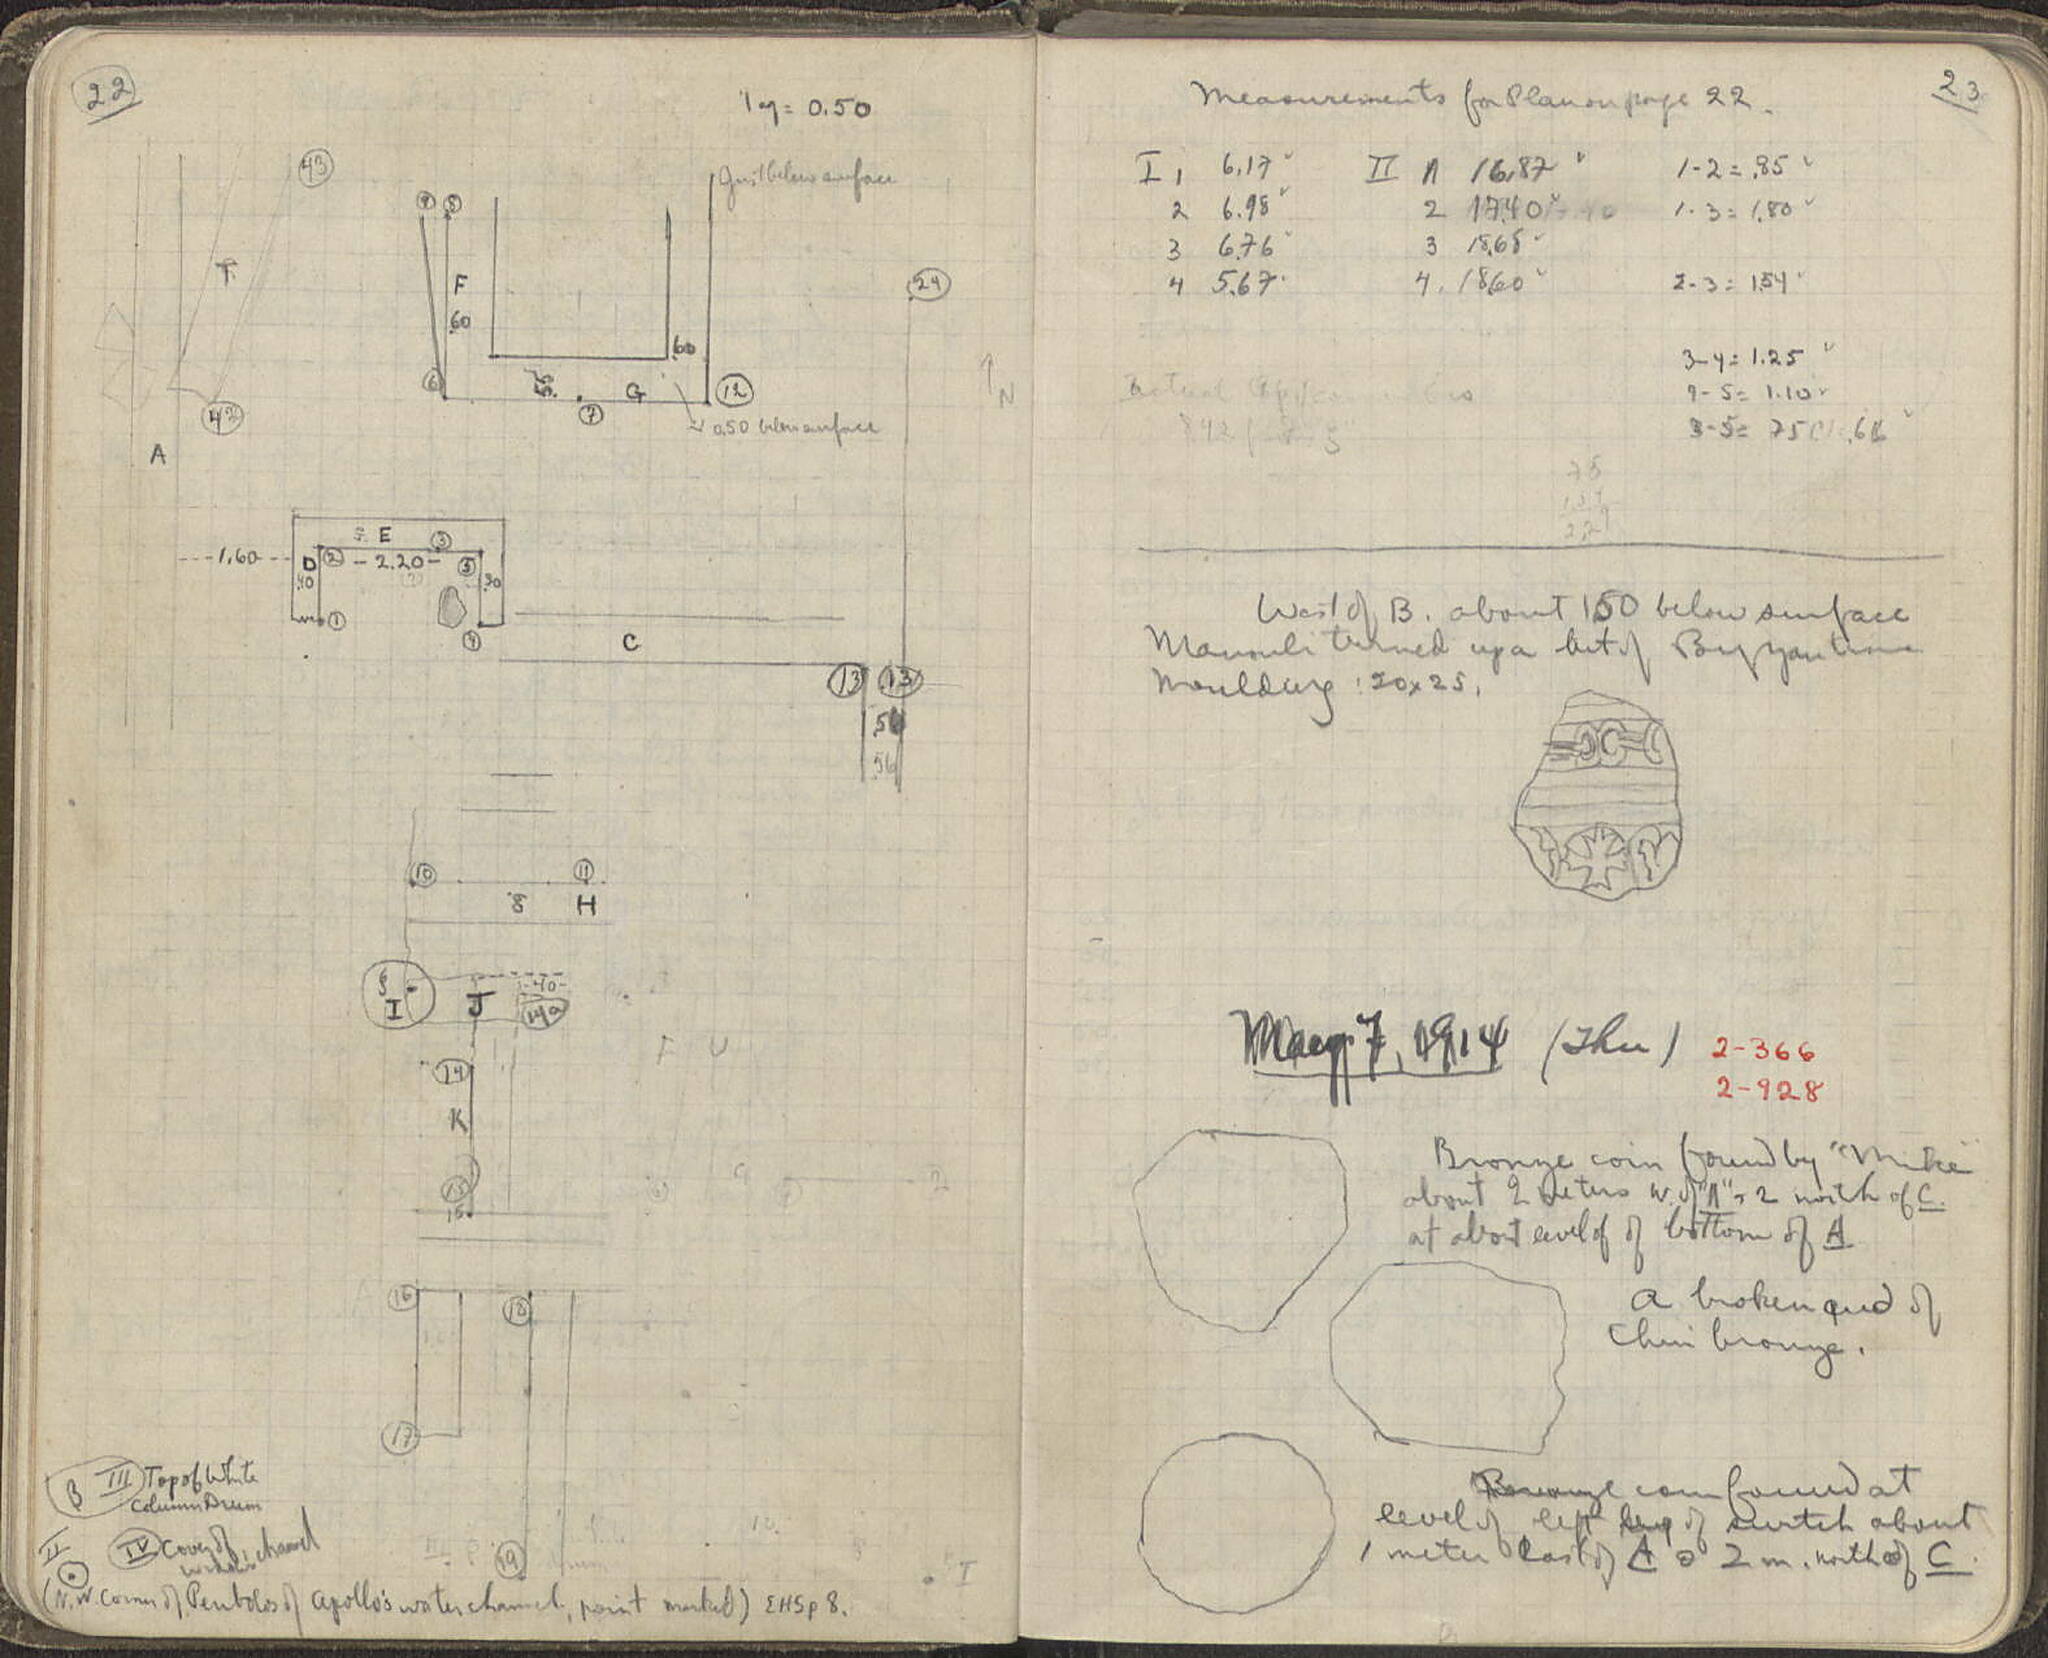 22
1 sq = 0.50
43
Just below surface
9 8
T.
F
.60
24
.60
6
G
12
7
N
42
0.50 below surface
A
E
3
---1.60---
D
2
- 2.20 -
5
.40
.30
1
4
C
13 13
.56
56
10
11
8
H
8
I
J
-40-
14a
14
K
15
15
16
18
17
B III Top of White
Column Drum
II
IV Cover of
channel
19
I
(N.W. Corner of Peribolos of Apollo's water channel, point marked) EHS p 8.
23
Measurements for Plan on page 22.
I 1 6.17 II 1 16.87 1-2 = .85
2 6.98 2 17.40 1-3 = 1.80
3 6.76 3 18.68
4 5.67 4. 18.60 2-3 = 1.54
3-4 = 1.25
4-5 = 1.10
3-5 =
West of B. about 1.50 below surface
Manouli turned up a bit of Byzantine
Moulding : 20 x 25.
May 7, 1914 (Thu) 2-366
2-928
Bronze coin found by "Mike"
about 2 meters W. of "A" & 2 north of C.
at about level of of bottom of A
A broken end of
thin bronze.
Bronze coin found at
level of left leg of switch about
1 meter East of A & 2 m. north of C.